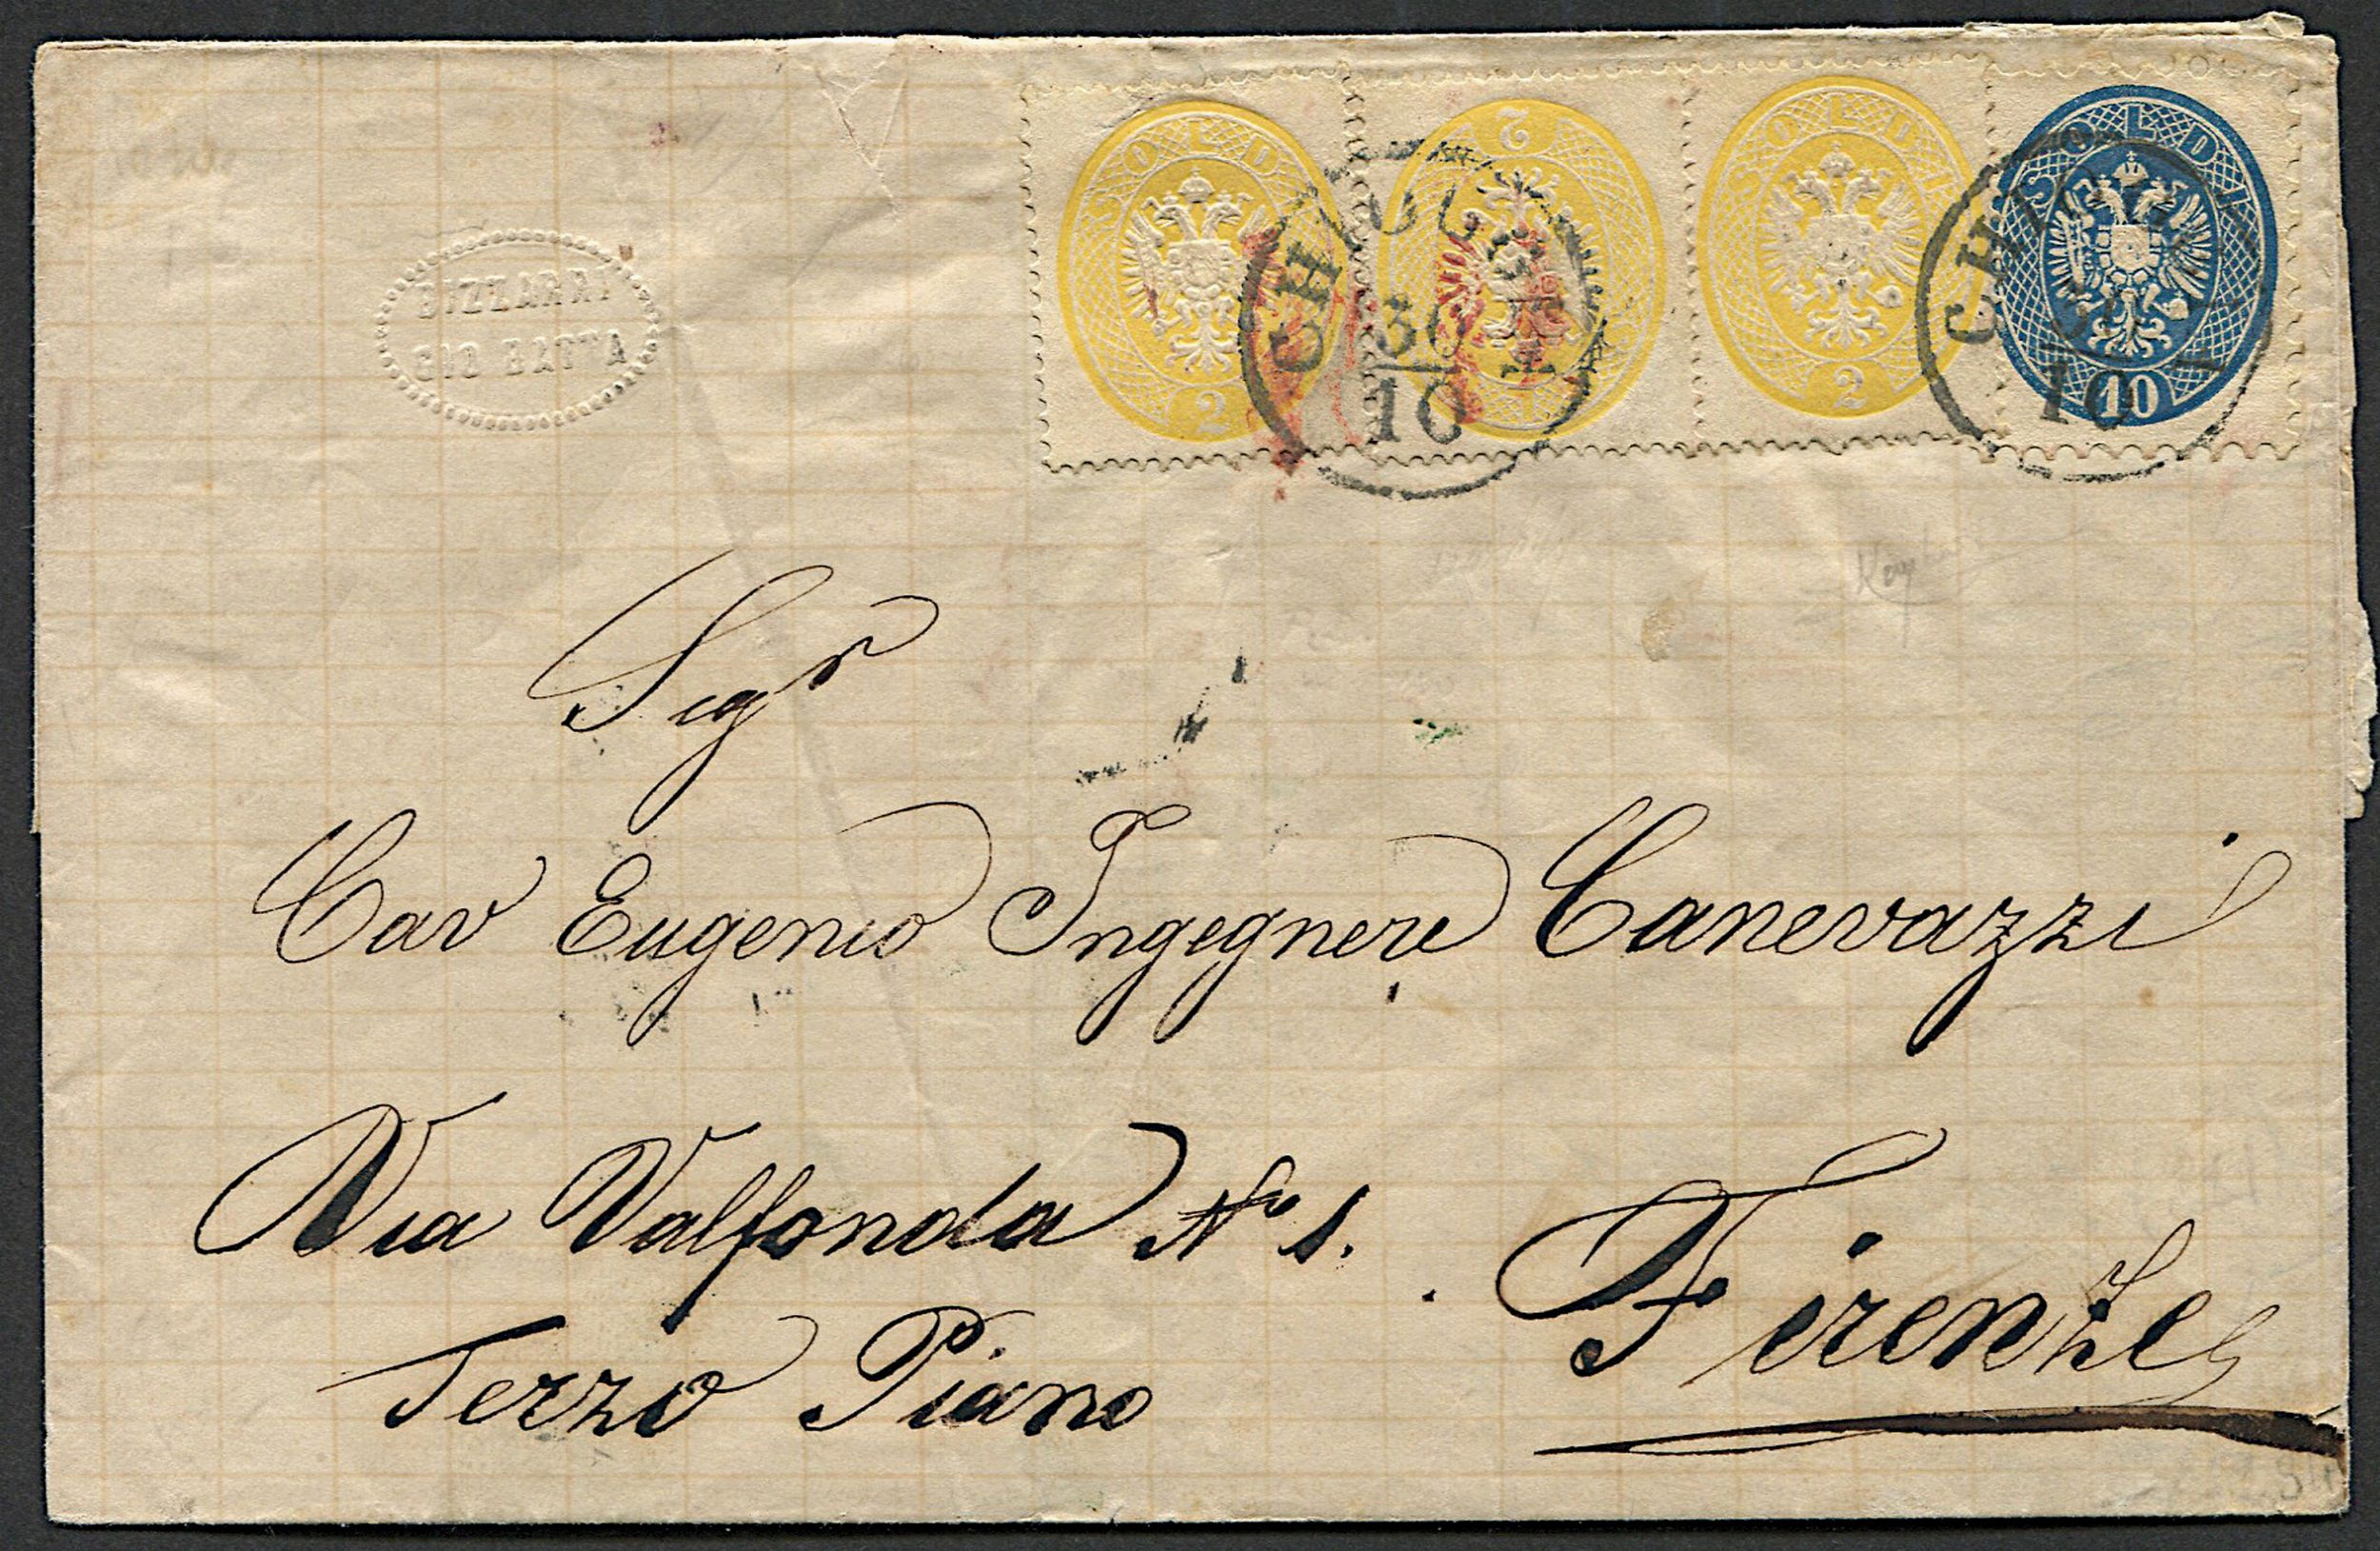 BIZZARRI
GIO BATTA
SOLDI
2
SOLDI
2
SOLDI
2
SOLDI
10
30
10
10
Sigr
Cav Eugenio Ingegnere Canevazzi
Via Valfonda No 1.
Terzo Piano
Firenze